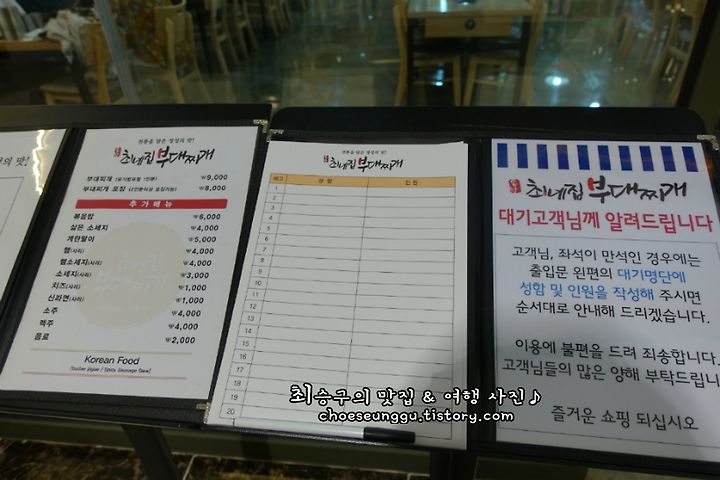 의 맛!
전통을 담은 정성의 맛!
최네집 부대찌개
부대찌개 (공기밥포함 1인분) ₩9,000
부대찌개 포장 (2인분이상 포장가능) ₩8,000
추가메뉴
볶음밥 ₩6,000
삶은 소세지 ₩4,000
계란말이 ₩5,000
햄(사리) ₩4,000
햄소세지(사리) ₩4,000
소세지(사리) ₩3,000
치즈(사리) ₩1,000
신라면(사리) ₩1,000
소주 ₩4,000
맥주 ₩4,000
음료 ₩2,000
Korean Food
전통을 담은 정성의 맛!
최네집 부대찌개
성 명 인 원
1
2
3
4
5
6
7
8
9
10
11
12
13
14
15
16
17
18
19
20
최네집 부대찌개
대기고객님께 알려드립니다
고객님, 좌석이 만석인 경우에는
출입문 왼편의 대기명단에
성함 및 인원을 작성해 주시면
순서대로 안내해 드리겠습니다.
이용에 불편을 드려 죄송합니다.
고객님들의 많은 양해 부탁드립니
즐거운 쇼핑 되십시오
최승구의 맛집 & 여행 사진♪
choeseunggu.tistory.com